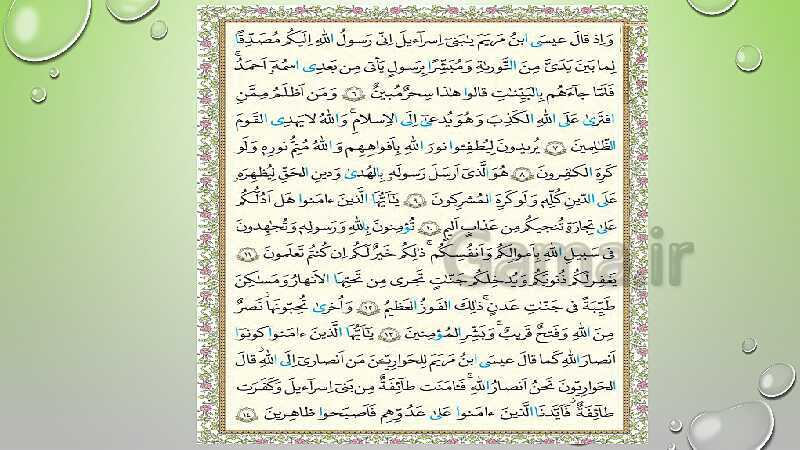 وَ اِذ قالَ عیسَی ابنُ مَریَمَ یٰبَنی اِسراءیلَ اِنّی رَسولُ اللهِ اِلَیکُم مُصَدِّقًا
لِما بَینَ یَدَیَّ مِنَ التَّورىٰةِ وَ مُبَشِّرًا بِرَسولٍ یَأتی مِن بَعدِی اسمُهٗ اَحمَدُ ۖ
فَلَمّا جاءَهُم بِالبَیِّنٰتِ قالوا هٰذا سِحرٌ مُبینٌ ﴿٦﴾ وَ مَن اَظلَمُ مِمَّنِ
افتَرىٰ عَلَی اللهِ الکَذِبَ وَ هُوَ یُدعىٰ اِلَی الاِسلامِ ۚ وَ اللهُ لا یَهدِی القَومَ
الظّالِمینَ ﴿٧﴾ یُریدونَ لِیُطفِئوا نورَ اللهِ بِاَفواهِهِم وَ اللهُ مُتِمُّ نورِهٖ وَ لَو
کَرِهَ الکٰفِرونَ ﴿٨﴾ هُوَ الَّذی اَرسَلَ رَسولَهٗ بِالهُدىٰ وَ دینِ الحَقِّ لِیُظهِرَهٗ
عَلَی الدّینِ کُلِّهٖ وَ لَو کَرِهَ المُشرِکونَ ﴿٩﴾ یٰاَیُّهَا الَّذینَ ءامَنوا هَل اَدُلُّکُم
عَلىٰ تِجارَةٍ تُنجیکُم مِن عَذابٍ اَلیمٍ ﴿١٠﴾ تُؤمِنونَ بِاللهِ وَ رَسولِهٖ وَ تُجٰهِدونَ
فی سَبیلِ اللهِ بِاَموالِکُم وَ اَنفُسِکُم ۚ ذٰلِکُم خَیرٌ لَکُم اِن کُنتُم تَعلَمونَ ﴿١١﴾
یَغفِر لَکُم ذُنوبَکُم وَ یُدخِلکُم جَنّٰتٍ تَجری مِن تَحتِهَا الاَنهارُ وَ مَسٰکِنَ
طَیِّبَةً فی جَنّٰتِ عَدنٍ ۚ ذٰلِکَ الفَوزُ العَظیمُ ﴿١٢﴾ وَ اُخرىٰ تُحِبّونَها ۖ نَصرٌ
مِنَ اللهِ وَ فَتحٌ قَریبٌ ۗ وَ بَشِّرِ المُؤمِنینَ ﴿١٣﴾ یٰاَیُّهَا الَّذینَ ءامَنوا کونوا
اَنصارَ اللهِ کَما قالَ عیسَی ابنُ مَریَمَ لِلحَوارِیّینَ مَن اَنصاری اِلَی اللهِ ۖ قالَ
الحَوارِیّونَ نَحنُ اَنصارُ اللهِ ۖ فَـٔامَنَت طائِفَةٌ مِن بَنی اِسراءیلَ وَ کَفَرَت
طائِفَةٌ ۖ فَاَیَّدنَا الَّذینَ ءامَنوا عَلىٰ عَدُوِّهِم فَاَصبَحوا ظاهِرینَ ﴿١٤﴾
Gama.ir